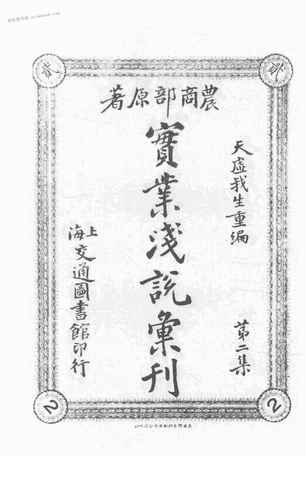 農商部原著
天虛我生重編
第二集
實業淺說彙刊
上海交通圖書館印行
貳
2
2